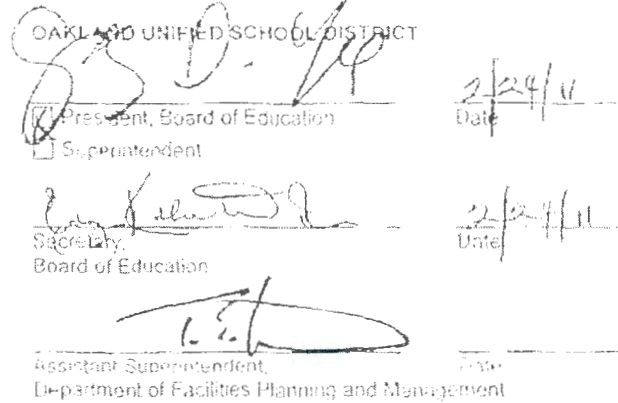 OAKLAND UNIFIED SCHOOL DISTRICT
2/24/11
President, Board of Education Date
Superintendent
2/24/11
Secretary, Date
Board of Education
Assistant Superintendent, Date
Department of Facilities Planning and Management